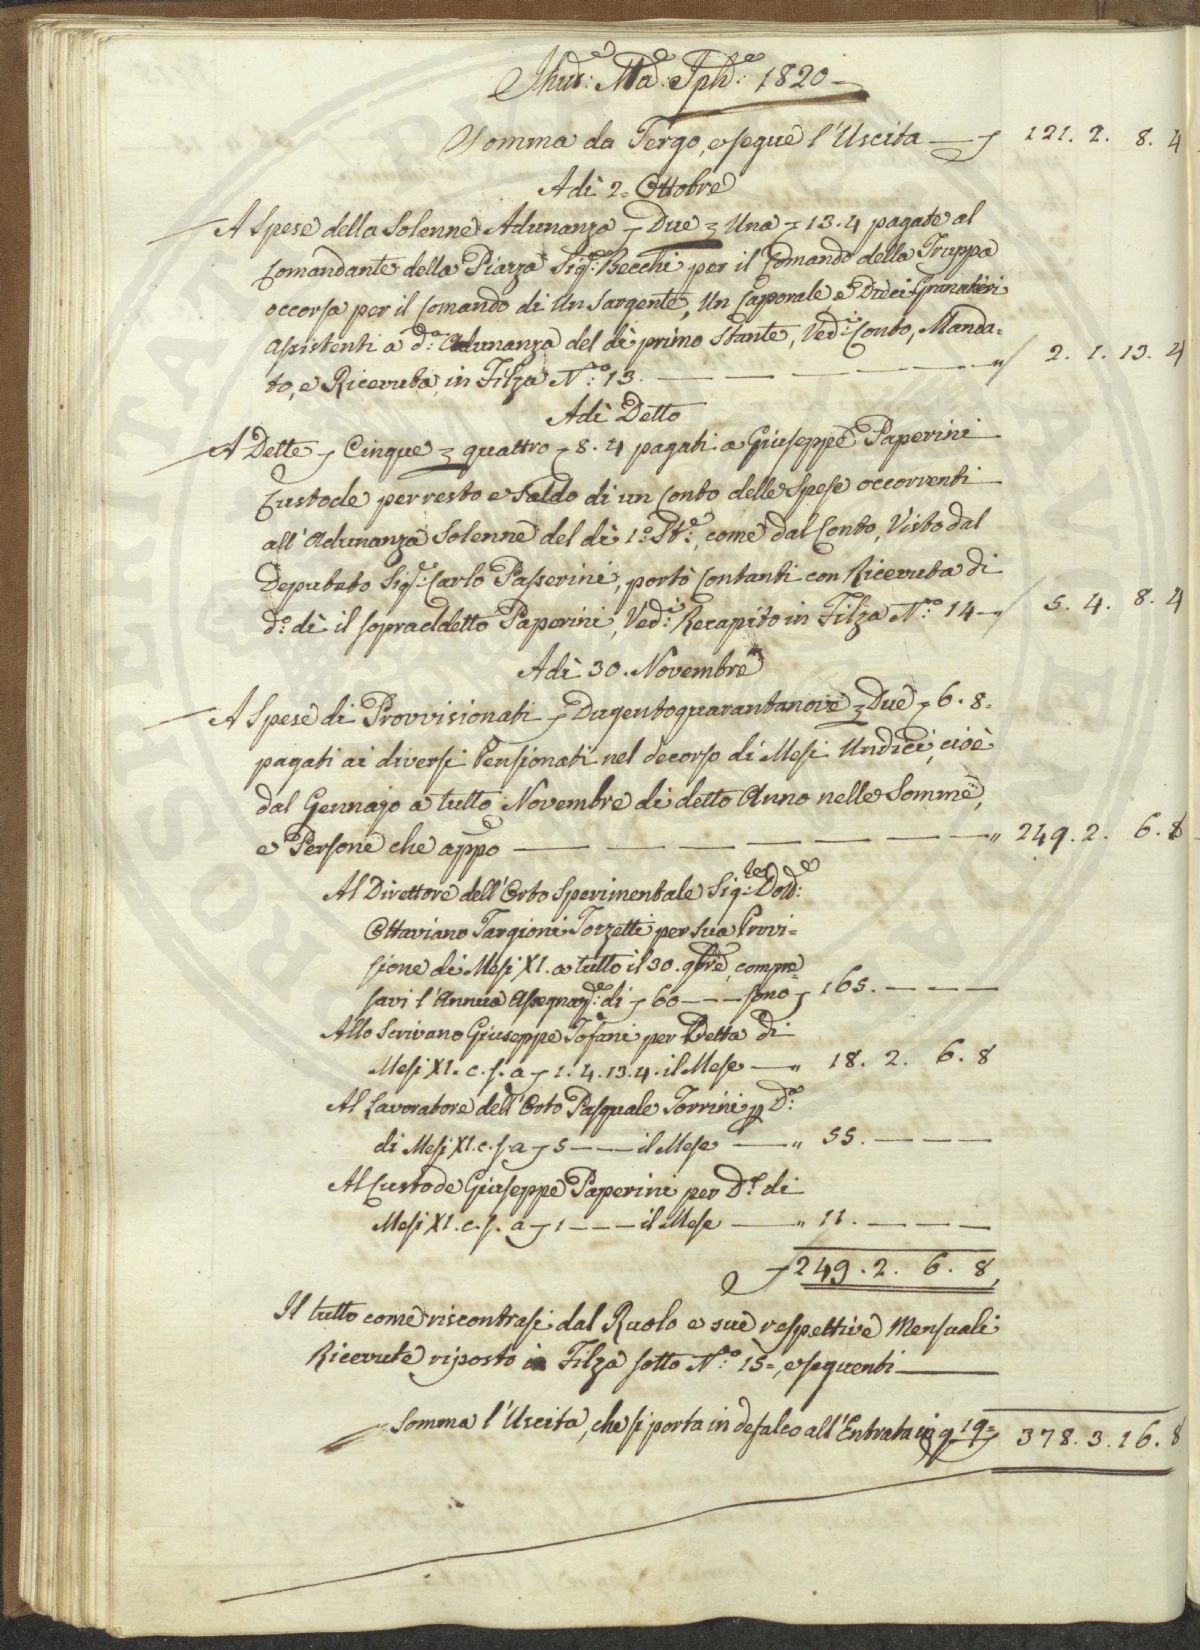 Jhus: Mã: Jph: 1820
Somma da Tergo, e segue l'Uscita 121. 2. 8. 4
Adì 2= Ottobre
A Spese della Solenne Adunanza Due Una 13. 4 pagate al
Comandante della Piazza Sig.r Becchi per il Comando della Truppa
occorsa per il Comando di Un Sargente, Un Caporale e Dieci Granatieri
assistenti a d.a Adunanza del dì primo Stante, Ved.i Conto, Manda=
to, e Ricevuta in Filza N.o 13. " 2. 1. 13. 4
Adì Detto
A Dette Cinque quattro 8. 4 pagati a Giuseppe Paperini
Custode per resto e Saldo di un Conto delle Spese occorrenti
all'Adunanza Solenne del dì 1.o St.e, come dal Conto, Visto dal
Deputato Sig.r Carlo Passerini, portò Contanti con Ricevuta di
d.o dì il sopraddetto Paperini, Ved.i Recapito in Filza N.o 14 5. 4. 8. 4
Adì 30. Novembre
A Spese di Provvisionati Dugentoquarantanove Due 6. 8=
pagati ai diversi Pensionati nel decorso di Mesi Undici, cioè
dal Gennajo a tutto Novembre di detto Anno nelle Somme,
e Persone che app.o " 249. 2. 6. 8
Al Direttore dell'Orto Sperimentale Sig.r Dott.e
Ottaviano Targioni Tozzetti per sua Provi=
sione di Mesi XI. a tutto il 30. 9bre, compre=
savi l'Annua Assegnaz.e di 60 — — sono 165. — — —
Allo Scrivano Giuseppe Tofani per Detta di
Mesi XI. c. s. a 1. 4. 13. 4. il Mese " 18. 2. 6. 8
Al Lavoratore dell'Orto Pasquale Torrini p D.a
di Mesi XI. c. s. a 5 — — il Mese " 55. — — —
Al Custode Giuseppe Paperini per D.a di
Mesi XI. c. s. a 1 — — — il Mese " 11. — — —
249. 2. 6. 8,
Il tutto come riscontrasi dal Ruolo e sue respettive Mensuali
Ricevute riposto in Filza sotto N.o 15=, e seguenti
Somma l'Uscita, che si porta in defalco all'Entrata in q 19= 378. 3. 16. 8